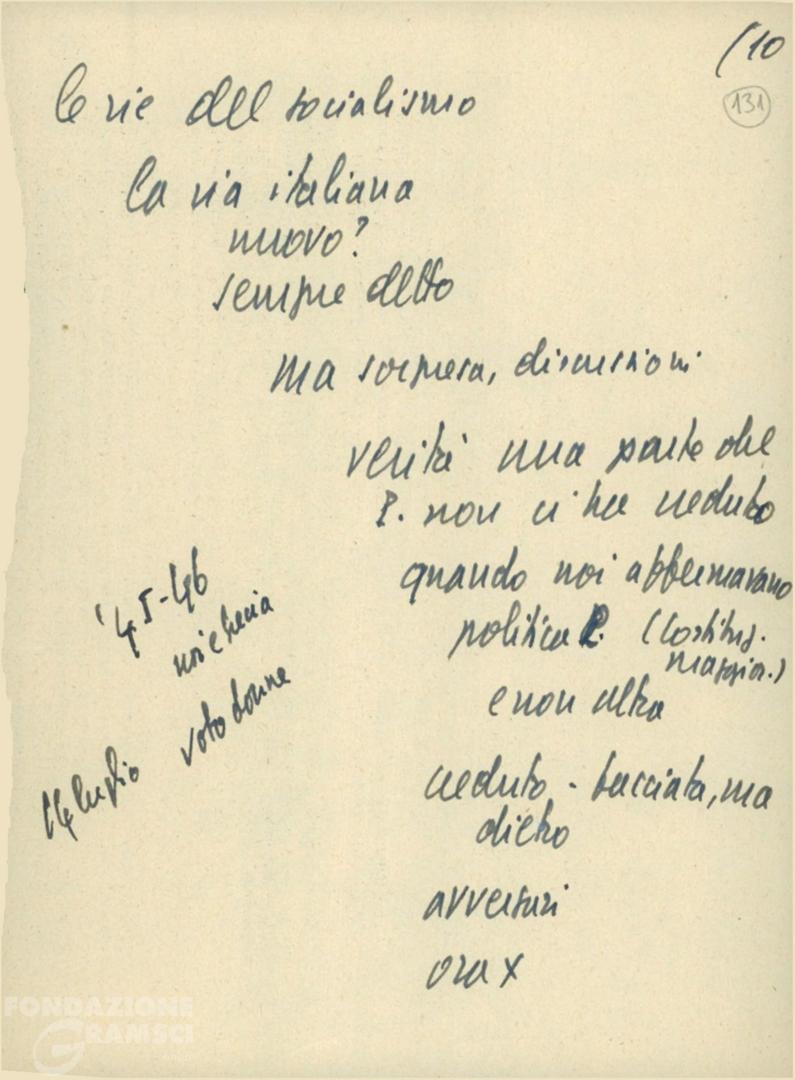 (10
131
le vie del socialismo
la via italiana
nuovo?
sempre detto
ma sorpresa, discussioni
verità una parte del
P. non ci ha creduto
quando noi affermavano
politica P. (Costituz.
maggior.)
e non altra
creduto - facciata, ma
dietro
avversari
ora x
'45-46
voto donne
14 luglio
FONDAZIONE
GRAMSCI